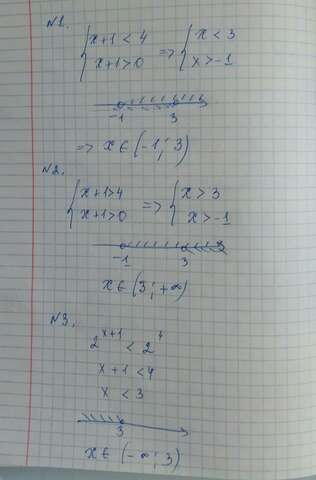 №1.
{ x+1 < 4 => { x < 3
{ x+1 > 0 { x > -1
-1 3
=> x ∈ (-1; 3)
№2.
{ x+1 > 4 => { x > 3
{ x+1 > 0 { x > -1
-1 3
x ∈ (3; +∞)
№3.
2^{x+1} < 2^4
x+1 < 4
x < 3
3
x ∈ (-∞; 3)